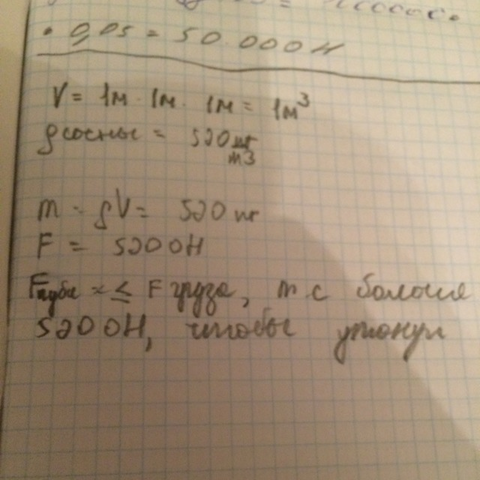 • 0,05 = 50.000Н
V = 1м · 1м · 1м = 1м³
ρ сосны = 520 кг/м3
m = ρV = 520 кг
F = 5200Н
Fкуба ≤ F груза, т.е больше
5200Н, чтобы утонул